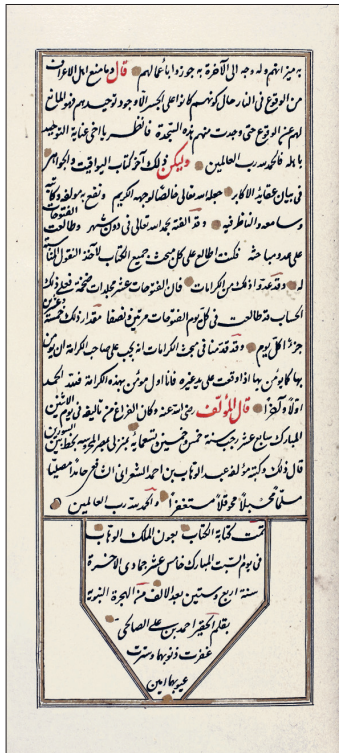 به ميزانهم وله وجه الى الآخرة به جوزوا باعمالهم قال وما منع اهل الاعراف
من الوقوع فى النار حال كونهم كانوا على الجسر الا وجود توحيدهم فهو المانع
لهم عن الوقوع حتى وجدت منهم هذه السجدة فانظر يا اخى عناية التوحيد
باهله فالحمد لله رب العالمين وليكن ذلك آخر كتاب اليواقيت والجواهر
فى بيان عقائد الاكابر جعله الله تعالى خالصا لوجهه الكريم ونفع به مؤلفه وكاتبه
وسامعه والناظر فيه وقد الفته بحمد الله تعالى فى دون شهر وطالعت الفتوحات
على عدد مباحثه فكنت اطالع على كل مبحث جميع الكتاب لآخذ النقول المناسبة
له وقد عدوا ذلك من الكرامات فان الفتوحات عشر مجلدات ضخمة فعلى ذلك
الحساب قد طالعت فى كل يوم الفتوحات مرتين ونصفا مقدار ذلك خمسة وعشرين
جزءا كل يوم وقد قدمنا فى مبحث الكرامات انه يجب على صاحب الكرامة ان يؤمن
بها كما يؤمن بها اذا وقعت على يد غيره فانا اول مؤمن بهذه الكرامة فلله الحمد
اولا وآخرا قال المؤلف رضى الله عنه وكان الفراغ من تأليفه فى يوم الاثنين
المبارك سابع عشر رجب سنة خمس وخمسين وتسعمائة بمنزلى بمصر المحروسة بخط بين السورين
قال ذلك وكتبه مؤلفه عبد الوهاب بن احمد الشعرانى الشافعى حامدا مصليا
مسلما محسبلا محوقلا مستغفرا والحمد لله رب العالمين
تمت كتابة الكتاب بعون الملك الوهاب
فى يوم السبت المبارك خامس عشر جمادى الآخرة
سنة اربع وستين بعد الالف من الهجرة النبوية
بقلم الحقير احمد بن على الصالحى
غفرت ذنوبهما وسترت
عيوبهما امين